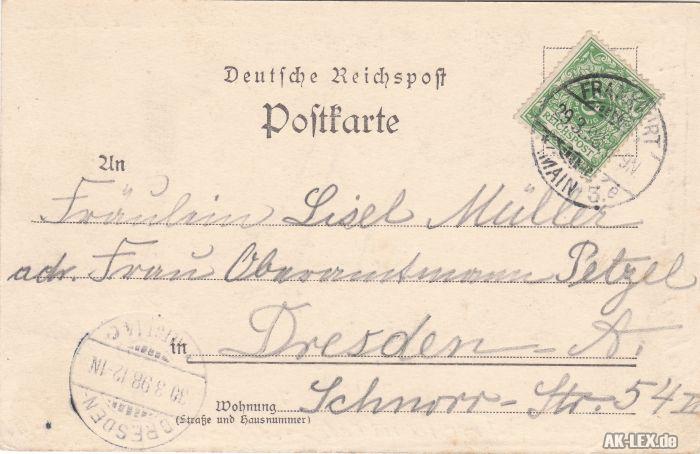 Deutsche Reichspost
Postkarte
FRANKFURT
29.3.
REICHSPOST
MAIN
5.
An
Fräulein Lisel Müller
adr. Frau Oberamtmann Petzel
in Dresden-A.
Wohnung Schnorr-Str. 54
(Straße und Hausnummer)
DRESDEN
30.3.98.12-1N
AK-LEX.de